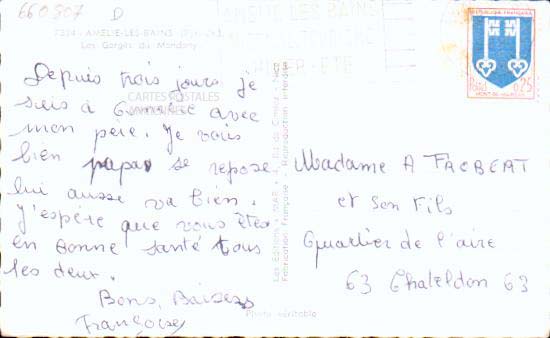 660307 D
7324 - AMELIE-LES-BAINS (Pyr.-Or.)
Les Gorges du Mondony
AMELIE LES BAINS
HIVER - ETE
REPUBLIQUE FRANÇAISE
0,25
MONT-DE-MARSAN
Depuis trois jours je
suis à avec
mon père. Je vais
bien papa se repose
lui aussi va bien.
J'espère que vous êtes
en bonne santé tous
les deux.
Bons Baisers
Françoise
CARTES POSTALES
ANCIENNES
Les Editions "MAR"
Fabrication Française - Reproduction interdite
Photo véritable
Madame A FACBEAT
et Son Fils
Quartier de l'aire
63 Chateldon 63